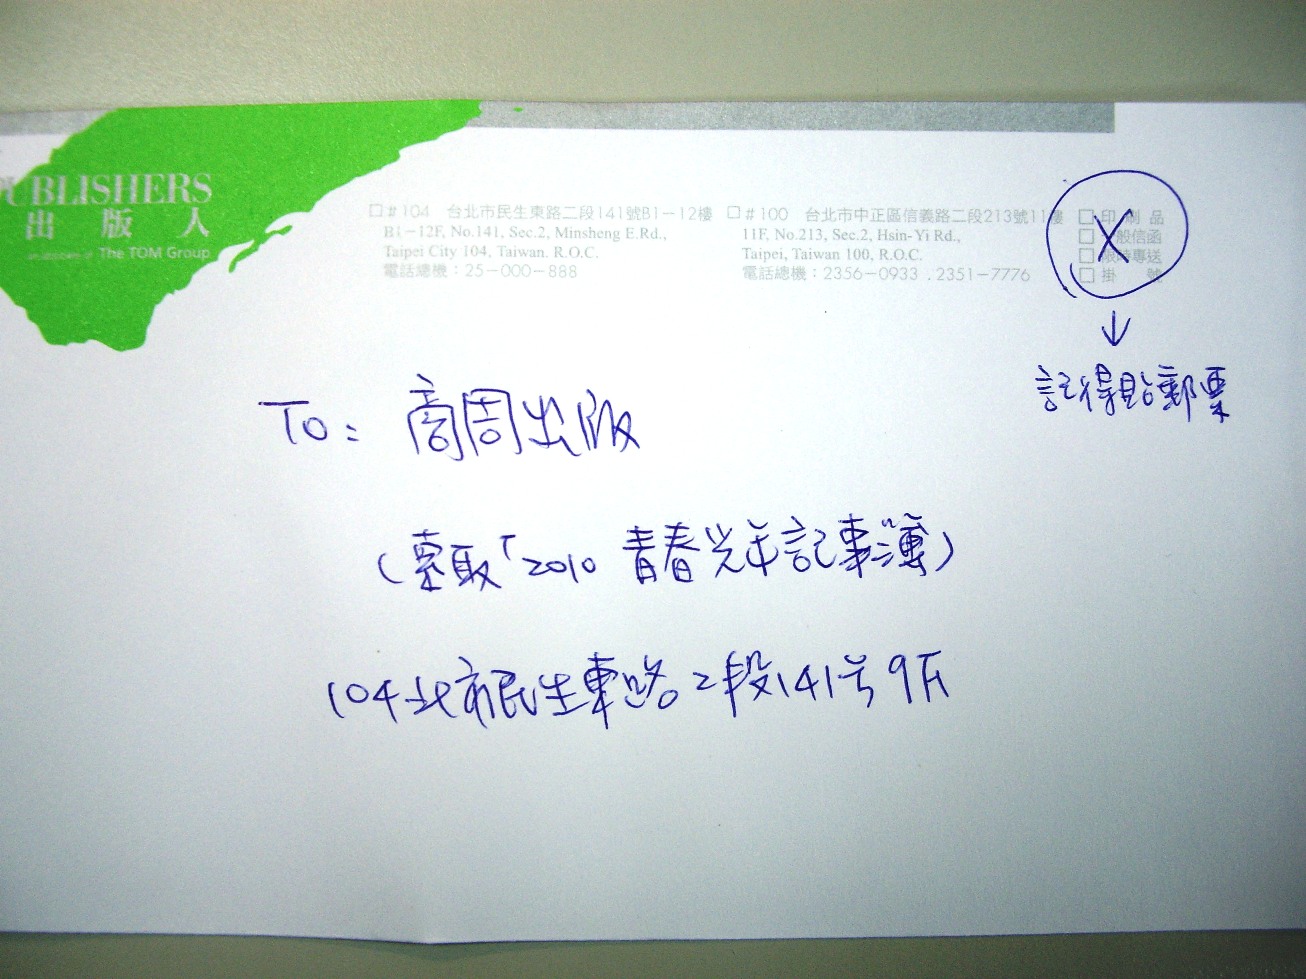 UBLISHERS
出版人
The TOM Group
□#104 台北市民生東路二段141號B1-12樓
B1-12F, No.141, Sec.2, Minsheng E.Rd.,
Taipei City 104, Taiwan. R.O.C.
電話總機：25-000-888
□#100 台北市中正區信義路二段213號11樓
11F, No.213, Sec.2, Hsin-Yi Rd.,
Taipei, Taiwan 100, R.O.C.
電話總機：2356-0933 . 2351-7776
□印刷品
□一般信函
□限時專送
□掛號
X
↓
記得貼郵票
To: 商周出版
(索取「2010 青春光年記事簿)
104北市民生東路二段141号9F